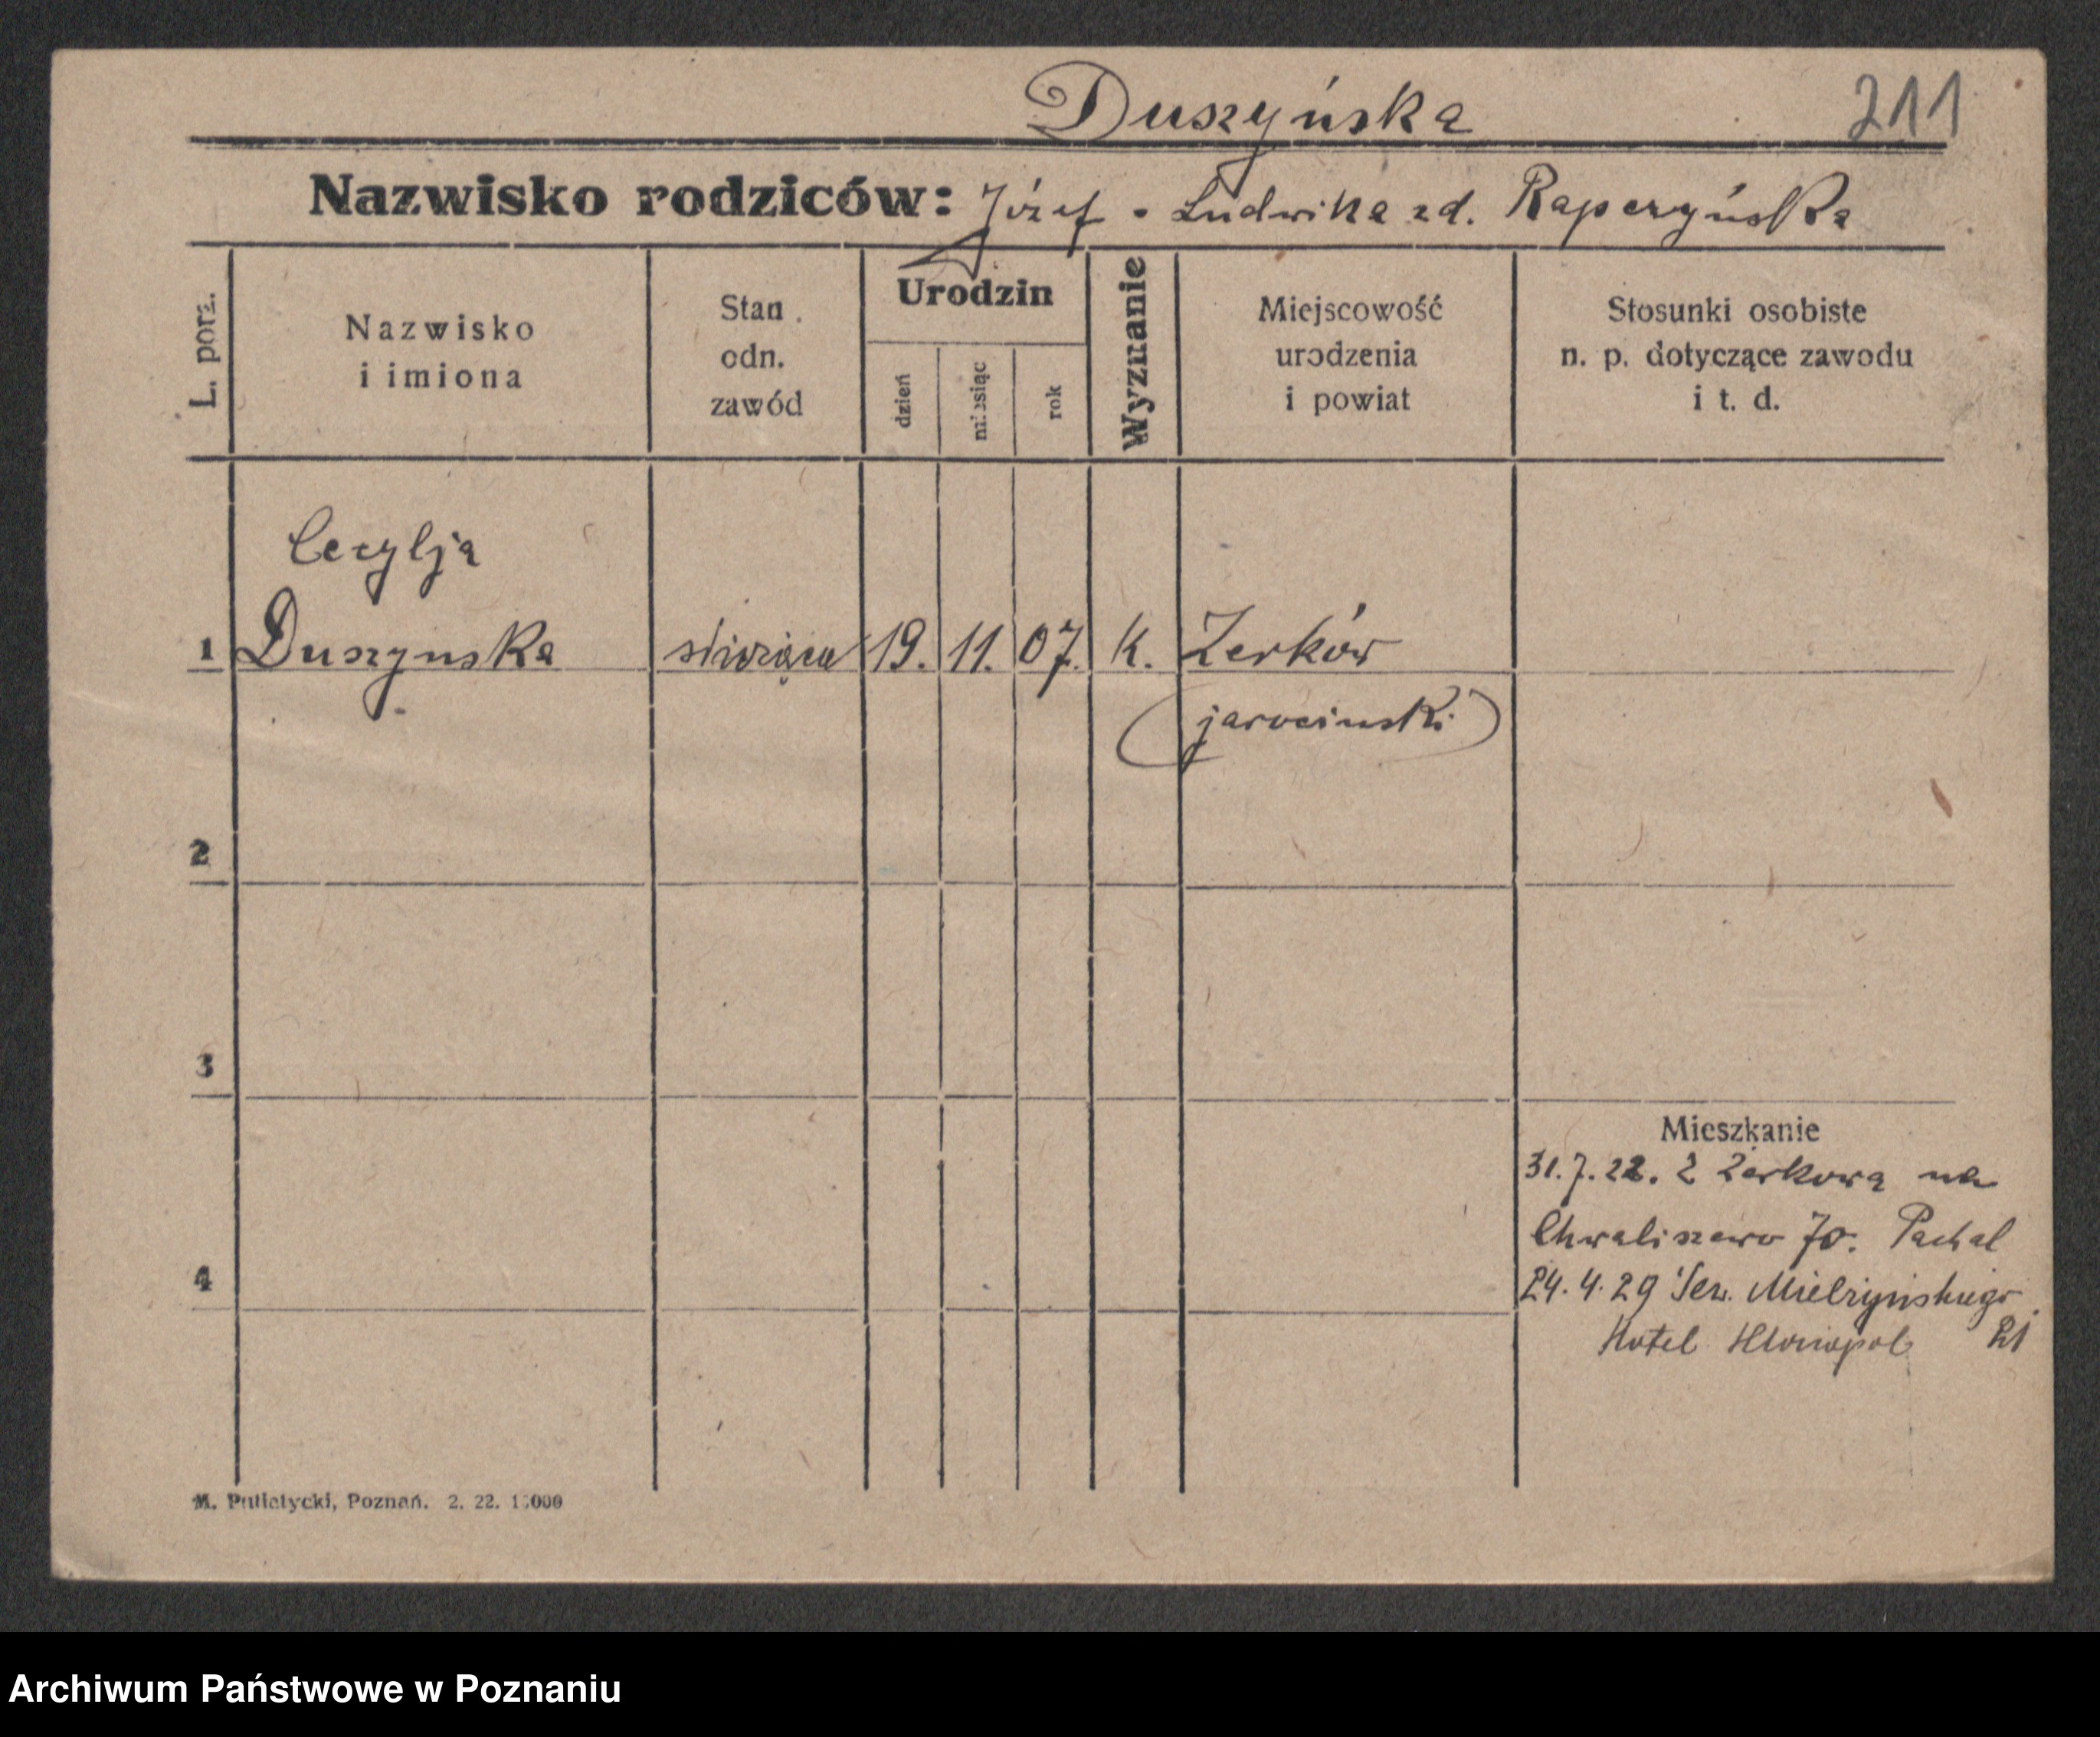 Duszyńska 211
Nazwisko rodziców: Józef - Ludwika zd. Raperzyńska
L. porz.
Nazwisko
i imiona
Stan
odn.
zawód
Urodzin
dzień
miesiąc
rok
Wyznanie
Miejscowość
urodzenia
i powiat
Stosunki osobiste
n. p. dotyczące zawodu
i t. d.
Cecylja
1 Duszynska służąca 19. 11. 07. K. Żerków
(jarocinski)
2
3
Mieszkanie
31.7.22. Z Żerkowa na
Chwaliszewo 70. Pachal
4
24.4.29 Sew. Mielżyńskiego
Hotel 21
M. Putiatycki, Poznań. 2. 22.
Archiwum Państwowe w Poznaniu